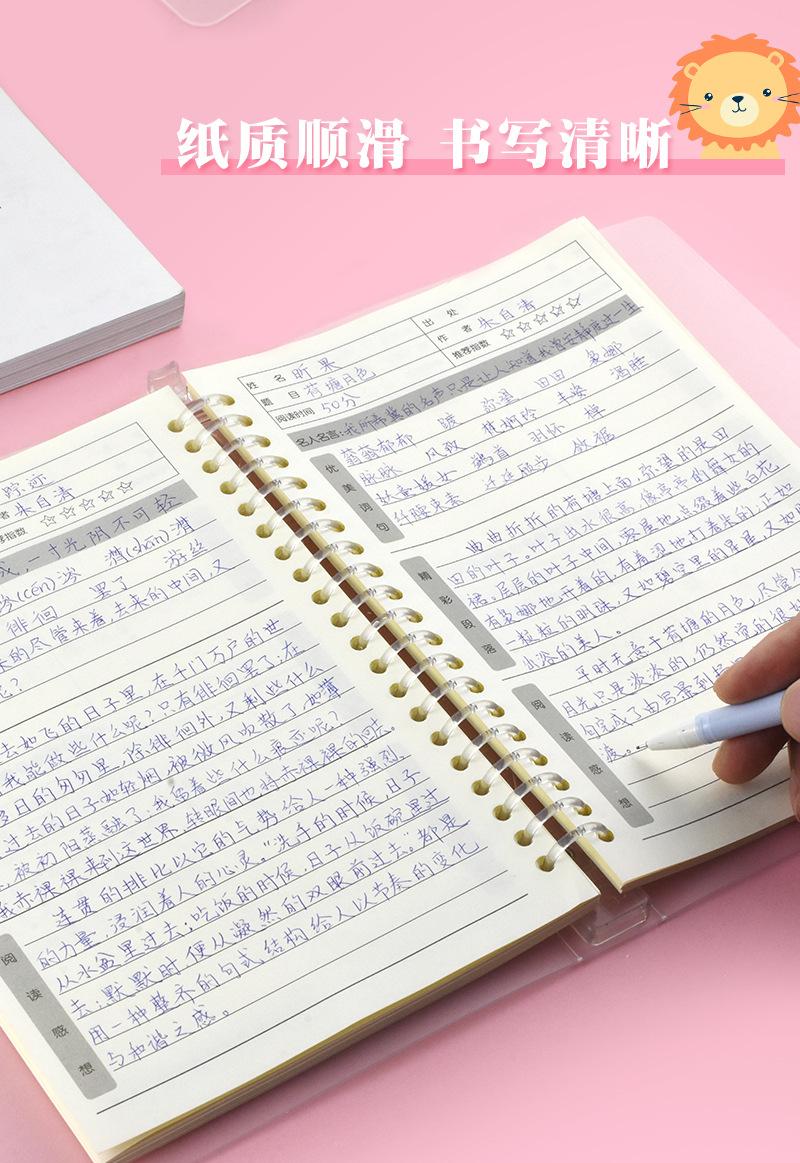 纸质顺滑 书写清晰
踪迹
者 朱自清
荐指数 ☆☆☆☆☆
一寸光阴不可轻
(cén)涔 潸(shān)潸
徘徊 罢了 游丝
的尽管来着,去来的中间,又
呢?
去如飞的日子里,在千门万户的世
我能做些什么呢?只有徘徊罢了,在
日的匆匆里,除徘徊外,又剩些什么
过去的日子如轻烟,被微风吹散了,如薄
,被初阳蒸融了;我留着些什么痕迹呢?
我赤裸裸来到这世界,转眼间也将赤裸裸的回去。
连贯的排比以它的气势给人一种强烈
的力量,浸润着人的心灵。"洗手的时候,日子
从水盆里过去;吃饭的时候,日子从饭碗里过
去;默默时,便从凝然的双眼前过去。"都是
用一种整齐的句式结构给人以节奏的变化
与和谐之感。
阅读感想
姓 名 昕果
出 处
题 目 荷塘月色
作 者 朱自清
阅读时间 50分
推荐指数 ☆☆☆☆☆
名人名言:我所希冀的名声只是让人知道我曾安静度过一生
优美词句
蓊蓊郁郁 踱 弥望 田田 袅娜
脉脉 风致 丰姿 渴睡
妖童媛女 鹢首 羽杯 棹
纤腰束素 迁延顾步 敛裾
精彩段落
曲曲折折的荷塘上面,弥望的是田
田的叶子。叶子出水很高,像亭亭的舞女的
裙。层层的叶子中间,零星地点缀着些白花
有袅娜地开着的,有羞涩地打着朵的;正如
一粒粒的明珠,又如碧空里的星星,又如
浴的美人。
阅读感想
平时无意于荷塘的月色,尽管今
月光只是淡淡的,仍然觉的很好
句完成了由写景到
渡。